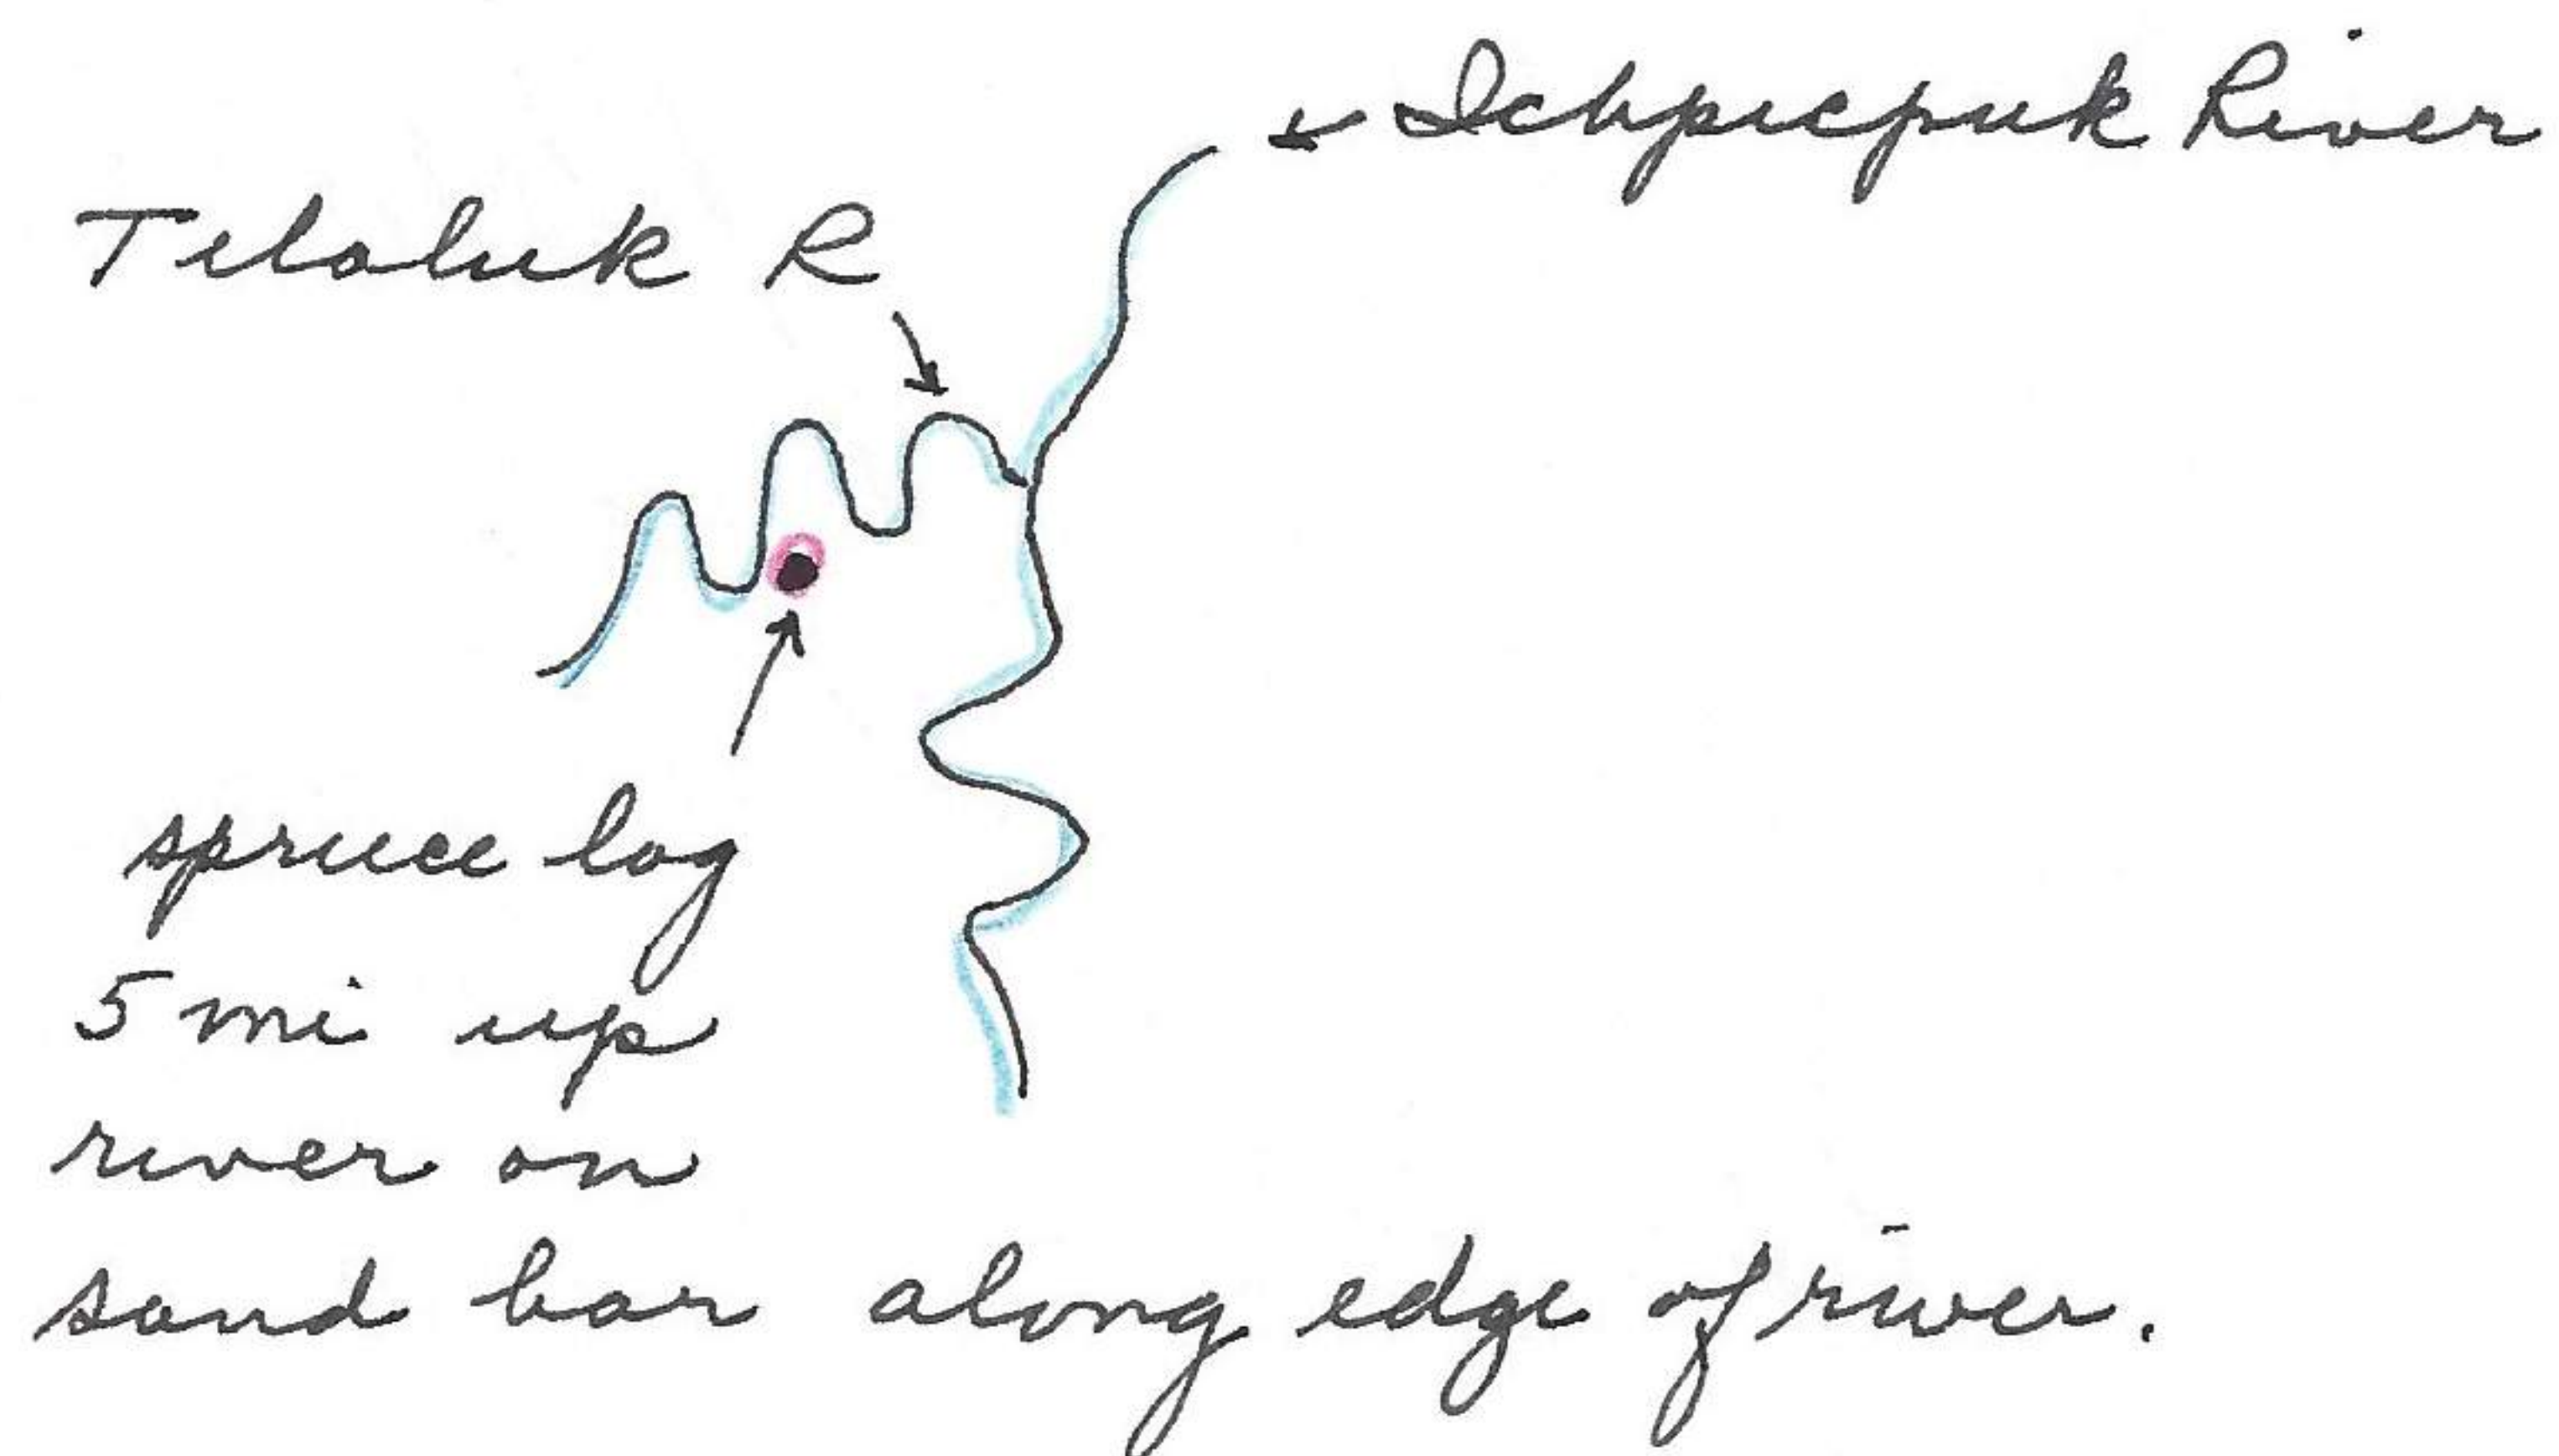 Ichpicpuk River
Teloluk R
spruce log
5 mi up
river on
sand bar along edge of river.